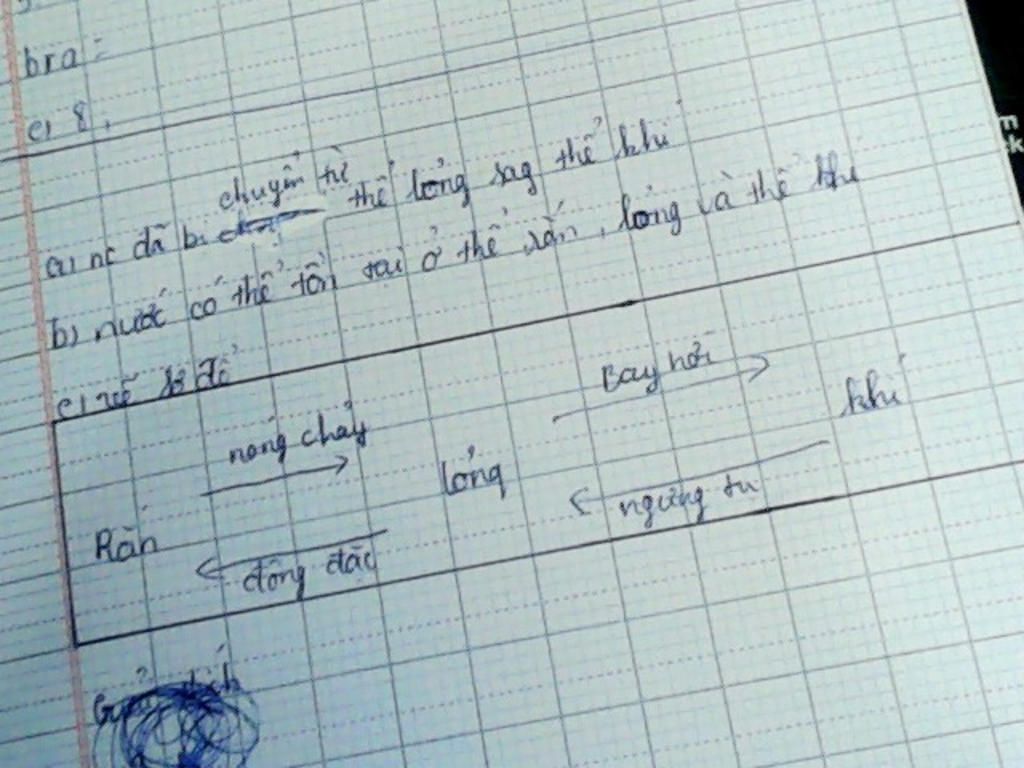 bra:
c, 8,
chuyển từ
a, nc đã bị thể lỏng sag thể khí
b) nước có thể tồn tại ở thể rắn, lỏng và thể khí
c, vẽ sơ đồ
Bay hơi
nong chảy
khí
lỏng
ngưng tụ
Rắn
đông đặc